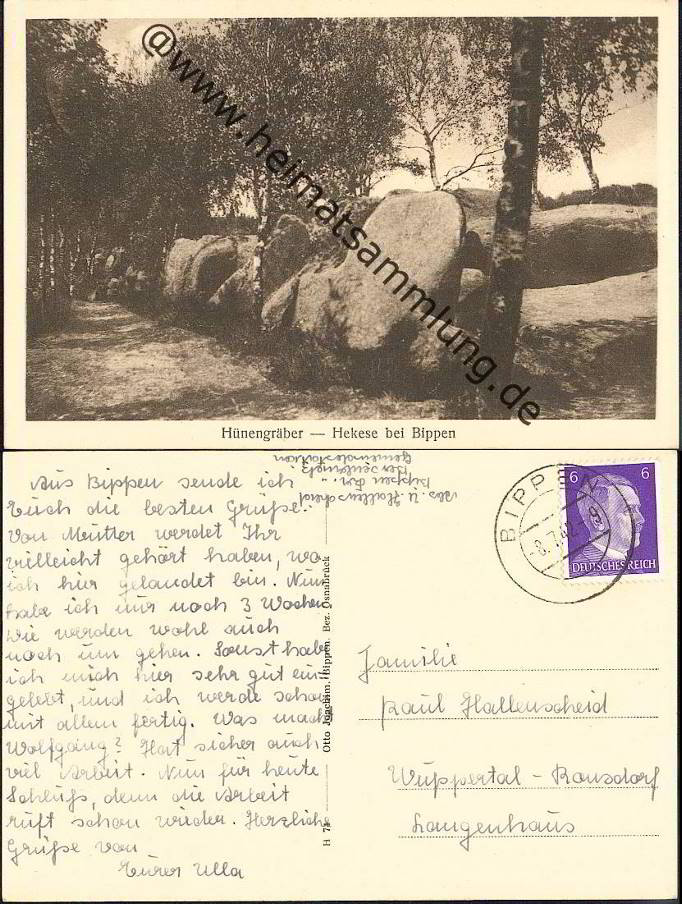 @www.heimatsammlung.de
Hünengräber — Hekese bei Bippen
Aus Bippen sende ich
Euch die besten Grüße.
Von Mutter werdet Ihr
vielleicht gehört haben, wo
ich hier gelandet bin. Nun
habe ich nur noch 3 Wochen.
Die werden wohl auch
noch um gehen. Sonst habe
ich mich hier sehr gut ein-
gelebt, und ich werde schon
mit allem fertig. Was macht
Wolfgang? Hat sicher auch
viel Arbeit. Nun für heute
Schluß, denn die Arbeit
ruft schon wieder. Herzliche
Grüße von
Eurer Ulla
Abs. U. Hallenscheid
Bippen
Gemeindestation
H 73 Otto Joachim, Bippen. Bez. Osnabrück
BIPPEN
8.7.42
6 6
DEUTSCHES REICH
Familie
Paul Hallenscheid
Wuppertal-Ronsdorf
Langenhaus